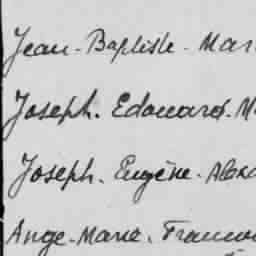 Jean-Baptiste-Mar
Joseph. Edouard. M
Joseph. Eugène. Alex
Ange-Marie. Francois